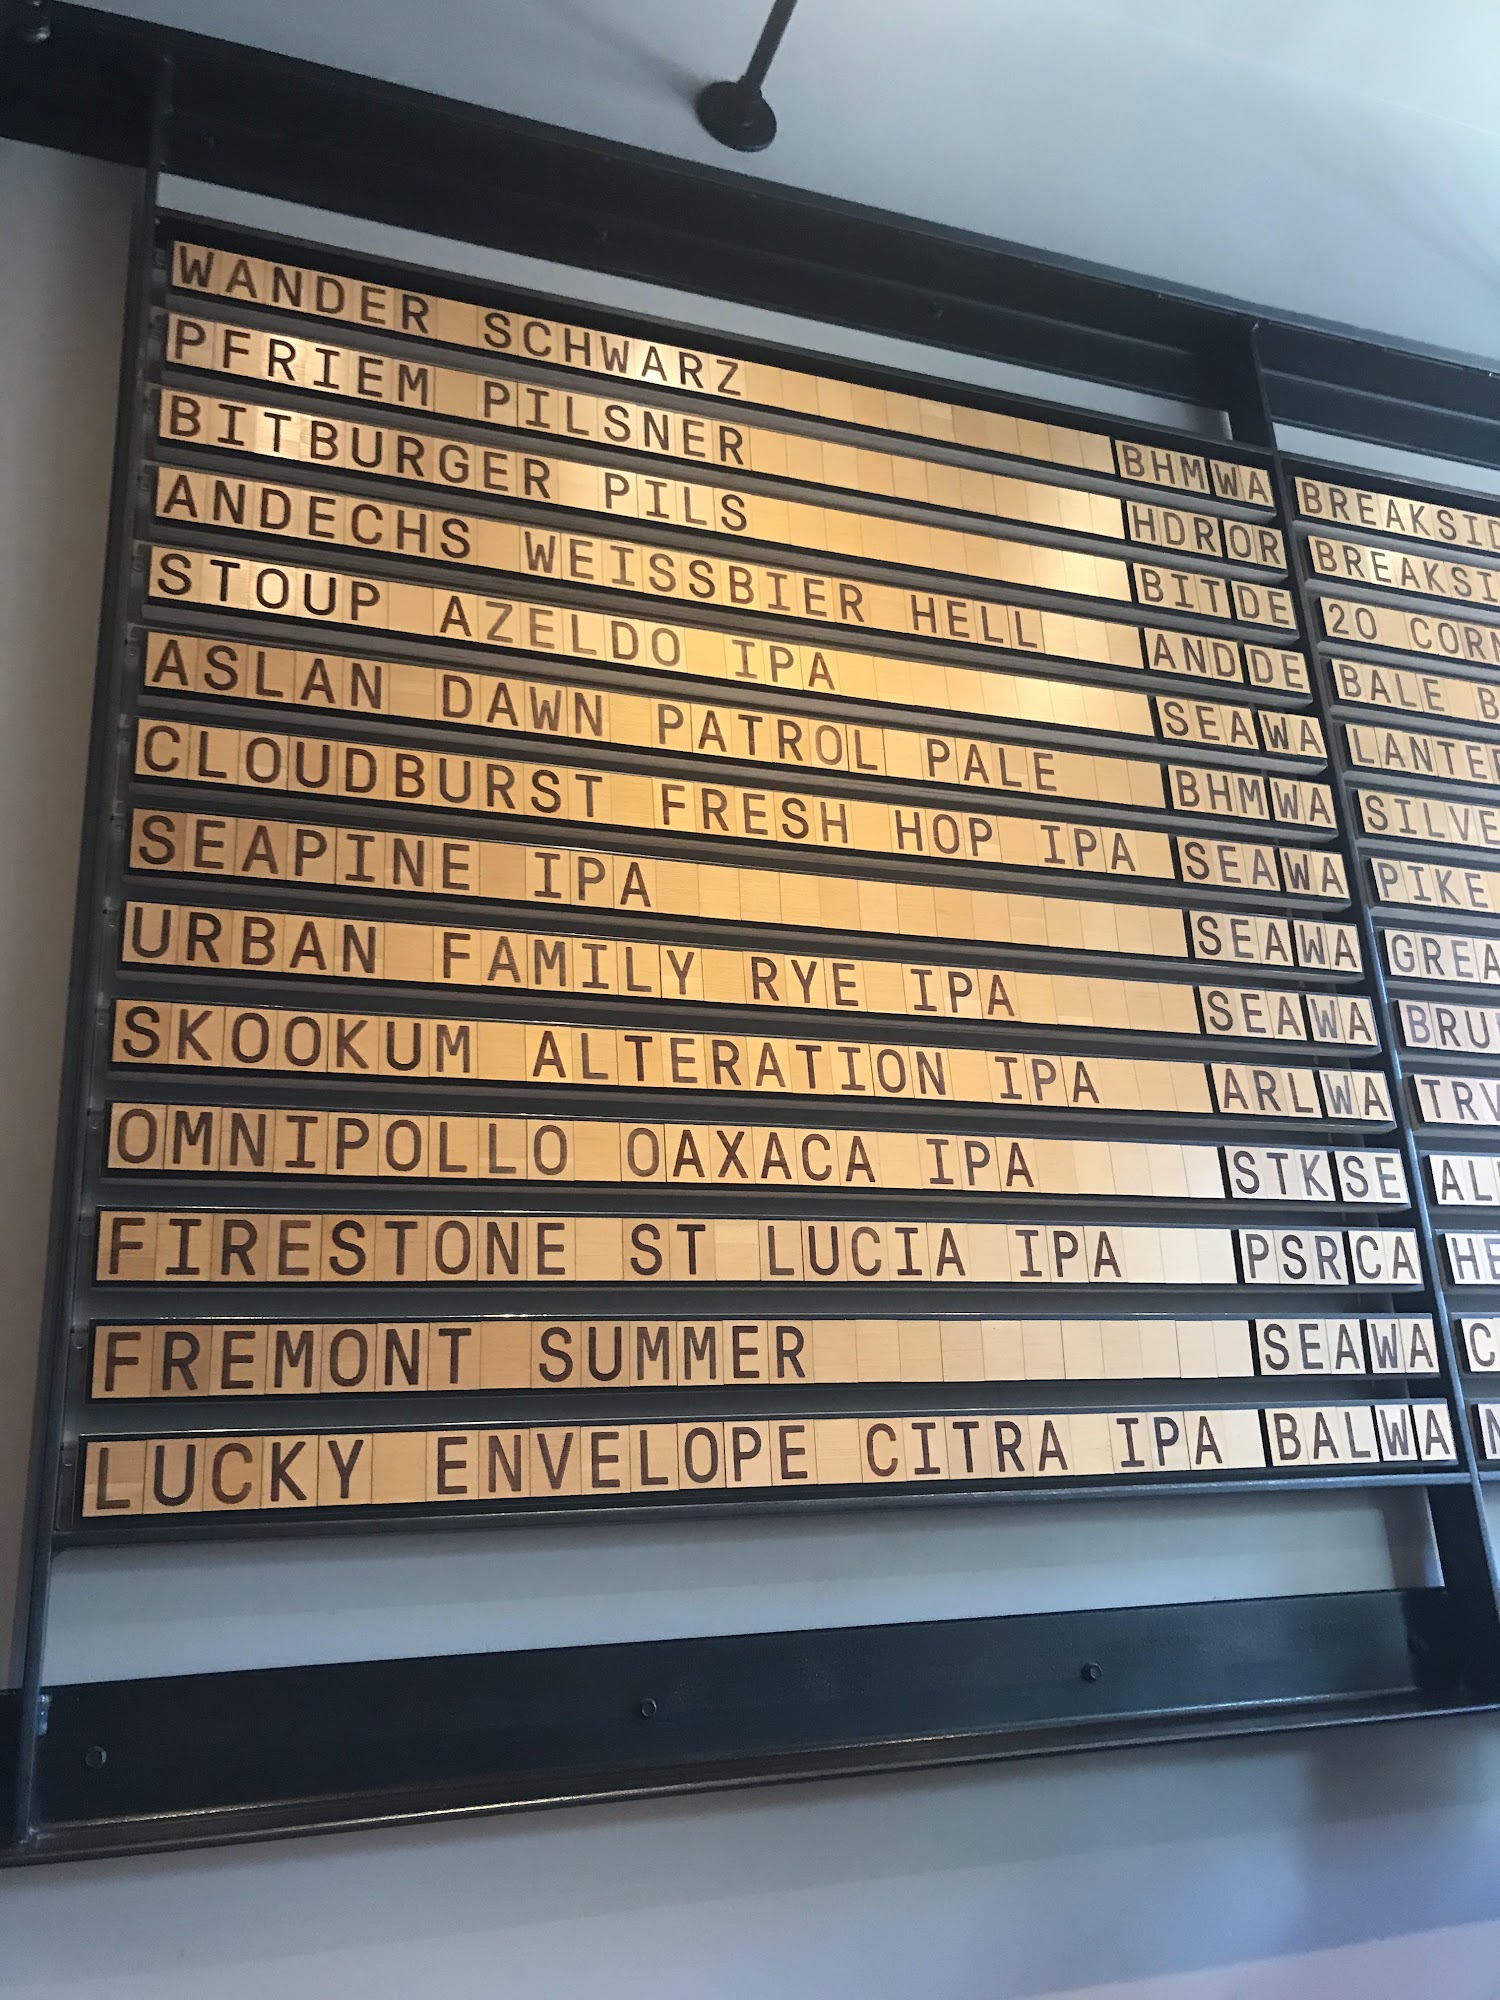 WANDER SCHWARZ BHM WA
PFRIEM PILSNER HDR OR
BITBURGER PILS BIT DE
ANDECHS WEISSBIER HELL AND DE
STOUP AZELDO IPA SEA WA
ASLAN DAWN PATROL PALE BHM WA
CLOUDBURST FRESH HOP IPA SEA WA
SEAPINE IPA SEA WA
URBAN FAMILY RYE IPA SEA WA
SKOOKUM ALTERATION IPA ARL WA
OMNIPOLLO OAXACA IPA STK SE
FIRESTONE ST LUCIA IPA PSR CA
FREMONT SUMMER SEA WA
LUCKY ENVELOPE CITRA IPA BAL WA
20
BALE
PIKE